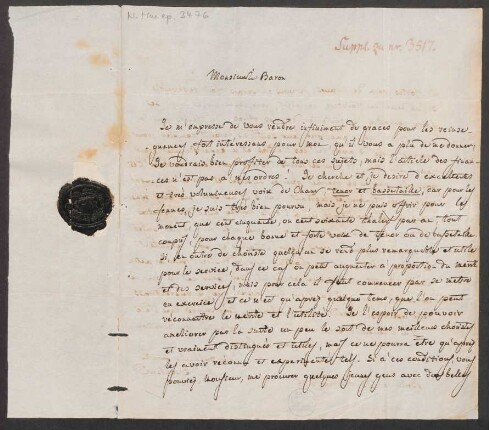 Mus. ep. 3476
Suppl zu nro 3517.
Monsieur le Baron
Je m'empresse de vous rendre infiniment de graces pour les reinse-
gnemens fort interessans pour moi qu'il vous a plu de me donner.
Je voudrais bien profiter de tous ces sujets, mais l'article des finan-
ces n'est pas à mes ordres! Je cherche et je desire d'excellentes
et très volumineuses voix de Chœur, tenor et bassetaille, car pour les
femes, je suis très bien pourvu. mais je ne puis offrir pour les
moment que cent cinquante, ou cent soixante thalers par an tout
compris, pour chaque bonne et forte voix de tenor ou de bassetaille
Si, en outre de choriste quelqu'un se rend plus remarquable et utile
pour le service, dans ce cas on peut augmenter à proportion du merite
et des services, mais pour cela il faut commencer par se mettre
en exercice et ce n'est qu'après quelque tems, que l'on peut
reconnaitre le merite et l'utilité. J'ai l'espoir de pouvoir
ameliorer par la suite un peu le sort de mes meilleurs choristes
et vraiment distingués et utiles, mais ce ne pourra être qu'après
les avoir reconnus et experimentés tels. Si à ces conditions, vous
pouvez, Monsieur, me procurer quelques jeunes gens avec de belles